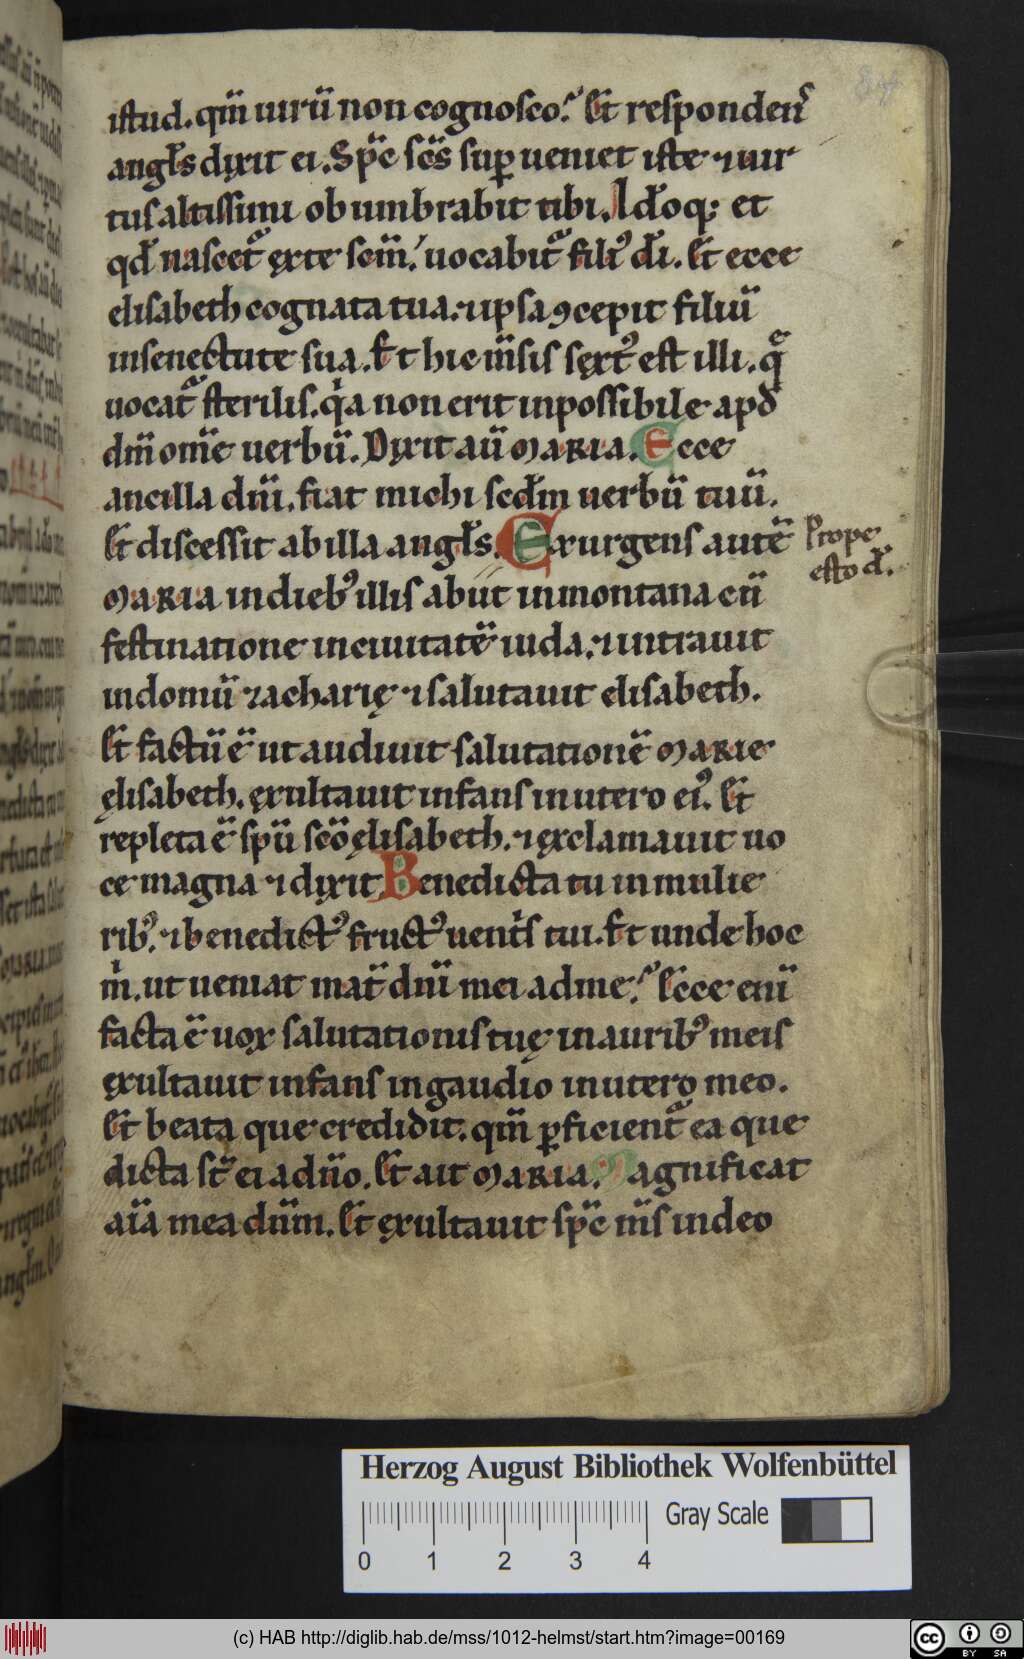 istud. qm̄ uirū non cognosco? Et responden᷑s
angl̄s dixit ei. Sp̄c sc̄s sup̱ ueniet iste ⁊ uir
tus altissimi obumbrabit tibi. Ido̵q; et
qd̄ nascet᷑ ęx te sc̄m. uocabit᷑ filiꝰ dī. Et ecce
elisabeth cognata tua. ⁊ ipsa ꝯcepit filiū
in senectute sua. Et hic m̄sis sęxtꝰ est illi. q̄
uocat᷑ sterilis. qia non erit inpossibile apd̄
dm̄ om̄e uerbū. Dixit aū MARIA. Ecce
ancilla dn̄i. fiat michi scdm̄ uerbū tuū.
Et discessit ab illa angl̄s. Exurgens autē
MARIA in diebꝰ illis abiit in montana cū
festinatione in ciuitatē iuda. ⁊ intrauit
in domū zacharię ⁊ salutauit elisabeth.
Et factū ē ut audiuit salutationē MARIE
ęlisabeth. ęxultauit infans in utero eiꝰ. Et
repleta ē spū sc̄o ęlisabeth. ⁊ ęxclamauit uo
ce magna ⁊ dixit Benedicta tu in mulie
ribꝰ. ⁊ benedictꝰ fructꝰ uentis tui. Et unde hoc
m̄. ut ueniat mat̄ dn̄i mei ad me? Ecce enī
facta ē uox salutationis tuę in auribꝰ meis
ęxultauit infans in gaudio in utero meo.
Et beata que credidit. qm̄ ꝑficient᷑ ea que
dicta st̄ ei a dn̄o. Et ait MARIA. Magnificat
aīa mea dn̄m. Et ęxultauit sp̄c m̄s in deo
Prope
esto d̄.
Herzog August Bibliothek Wolfenbüttel
Gray Scale
0 1 2 3 4
(c) HAB http://diglib.hab.de/mss/1012-helmst/start.htm?image=00169
cc BY SA